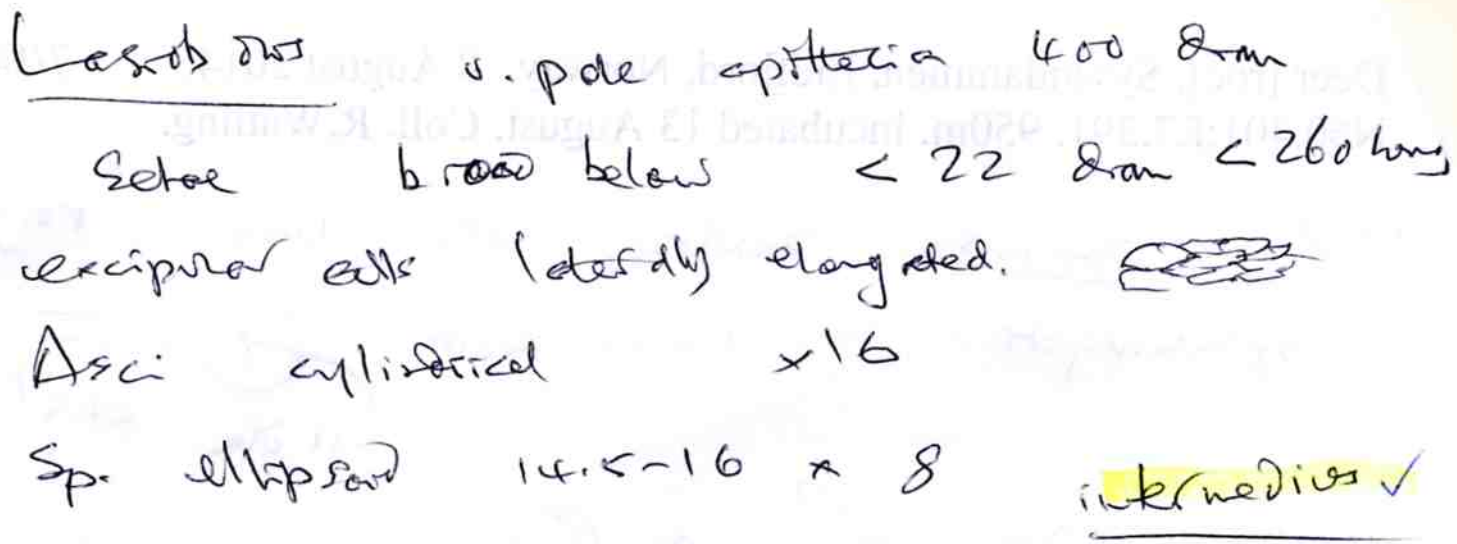 Lasiobolus v. pale apothecia 400 diam
Setae broad below < 22 diam < 260 long
excipular cells laterally elongated.
Asci cylindrical x 16
Sp. ellipsoid 14.5-16 x 8 intermedius ✓